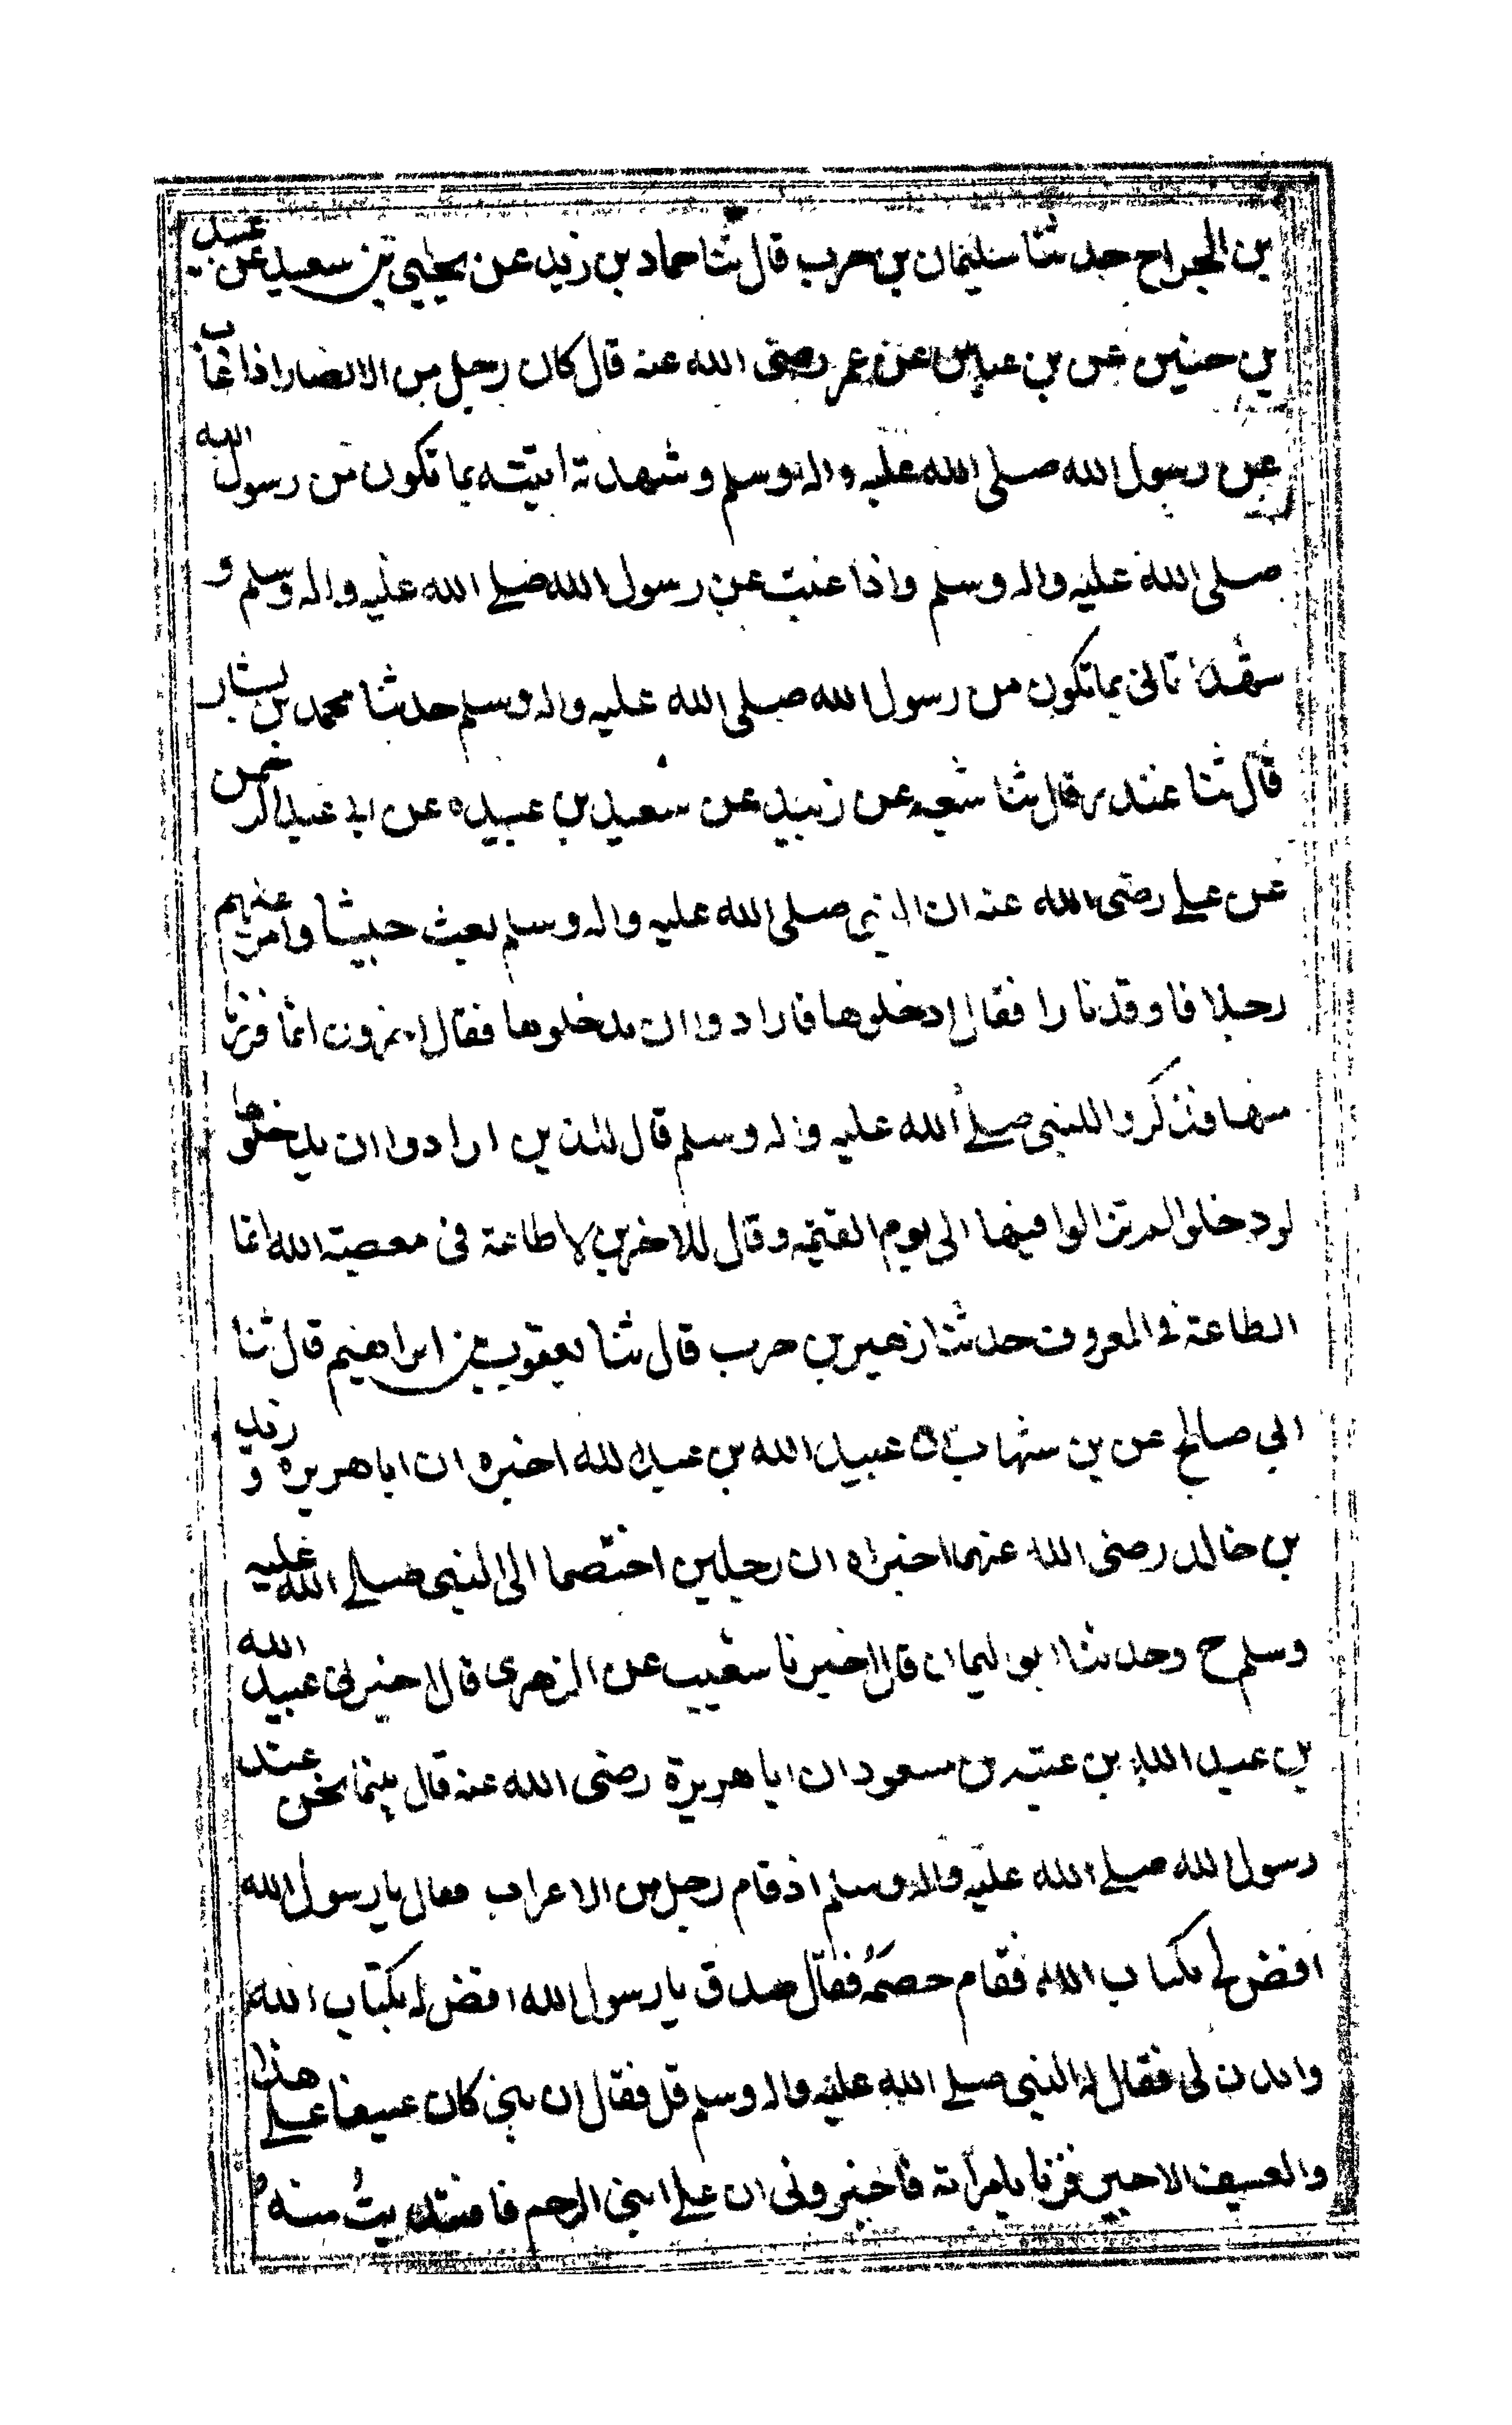 بن الجراح حدثنا سليمان بن حرب قال ثنا حماد بن زيد عن يحيي بن سعيد عن عبيد
بن حنين عن بن عباس عن عمر رضي الله عنه قال كان رجل من الانصار اذا غاب
عن رسول الله صلى الله عليه واله وسلم وشهدته اتيته بما تكون من رسول الله
صلى الله عليه واله وسلم واذا غبت عن رسول الله صلے الله عليه واله وسلم و
شهد تانى بما تكون من رسول الله صلى الله عليه واله وسلم حدثنا محمد بن بشار
قال ثنا غندر قال ثنا شعبه عن زبيد عن سعيد بن عبيده عن ابي عبد الرحمن
عن علے رضى الله عنه ان النبي صلى الله عليه واله وسلم بعث جيشا وامر عليهم
رجلا فاوقد نارا فقال ادخلوها فارادوا ان يدخلوها فقال اخرون انما فررنا
منها فذكروا للنبى صلے الله عليه واله وسلم قال للذين ارادوا ان يدخلوها
لو دخلوا لم تزالوا فيها الى يوم القيمه وقال للاخرين لا طاعة فى معصية الله انما
الطاعة في المعروف حدثنا زهير بن حرب قال ثنا يعقوب بن ابراهيم قال ثنا
ابي صالح عن بن شهاب ان عبيد الله بن عبد الله اخبره ان ابا هريره و زيد
بن خالد رضى الله عنهما اخبراه ان رجلين اختصما الى النبى صلے الله عليه
وسلم ح وحدثنا ابو اليمان قال اخبرنا شعيب عن الزهرى قال اخبرنى عبيد الله
بن عبد الله بن عتبه بن مسعود ان ابا هريرة رضى الله عنه قال بينما نحن عند
رسول الله صلے الله عليه واله وسلم اذ قام رجل من الاعراب فقال يا رسول الله
اقض لي بكتاب الله فقام خصمه فقال صدق يا رسول الله اقض له بكتاب الله
وائذن لى فقال له النبى صلے الله عليه واله وسلم قل فقال ان بنى كان عسيفا علے هذا
والعسيف الاجير فزنا بامرأته فأخبرونى ان علے ابنى الرجم فافتديتُ منه